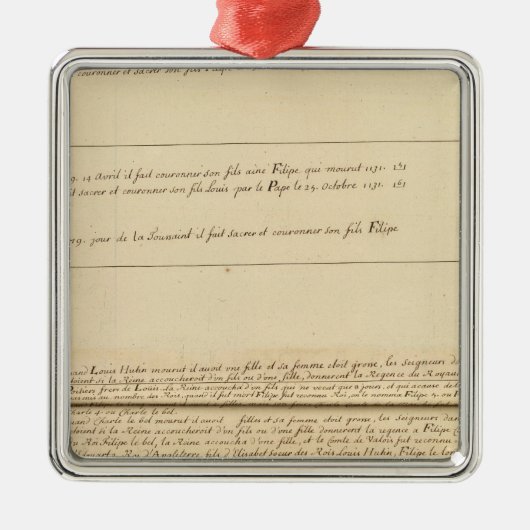 couronner et sacrer son fils Filipe
9. 14 Avril il fait couronner son fils ainé Filipe qui mourut 1131.
it sacrer et couronner son fils Louis par le Pape le 25. Octobre 1131.
79. jour de la Toussaint il fait sacrer et couronner son fils Filipe
uand Louis Hutin mourut il avoit une fille et sa femme etoit grosse, les seigneurs d
doient si la Reine accoucheroit d'un fils ou d'une fille, donnerent la Regence du Royau
Poitiers frere de Louis. la Reine accoucha d'un fils qui ne vecut que 8 jours, et qui acause de
mis au nombre des Rois, quand il fut mort Filipe fut reconnu Roi, on le nomma Filipe 5. ou F
Charle 4. ou Charle le bel.
uand Charle le bel mourut il avoit filles et sa femme etoit grosse, les Seigneurs dan
doient si la Reine accoucheroit d'un fils ou d'une fille donnerent la regence a Filipe C
du Roi Filipe le bel, la Reine accoucha d'une fille, et le Comte de Valois fut reconnu
Roi d'Angleterre fils d'Elisabet soeur des Rois Louis Hutin, Filipe le lon